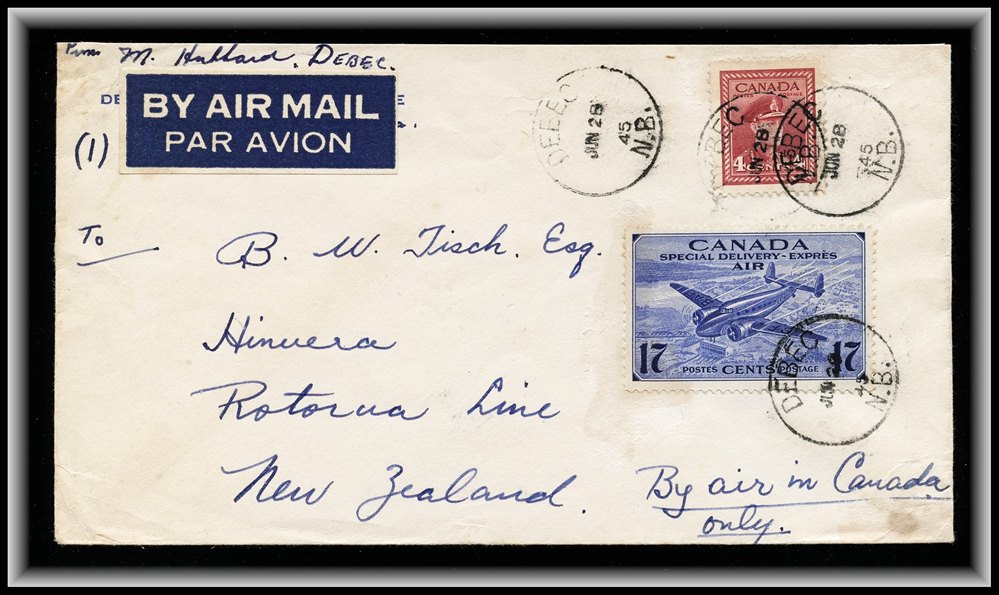 From M. Hubbard. DEBEC.
DE
E
BY AIR MAIL
PAR AVION
(1)
DEBEC
JUN 28
45
N.B.
CANADA
POSTES POSTAGE
4 CENTS 4
DEBEC
JUN 28
DEBEC
JUN 28
45
N.B.
To
B. W. Tisch. Esq.
Hinuera
Rotorua Line
New Zealand.
CANADA
SPECIAL DELIVERY-EXPRÈS
AIR
17 POSTES CENTS POSTAGE 17
DEBEC
JUN 28
45
N.B.
By air in Canada
only.